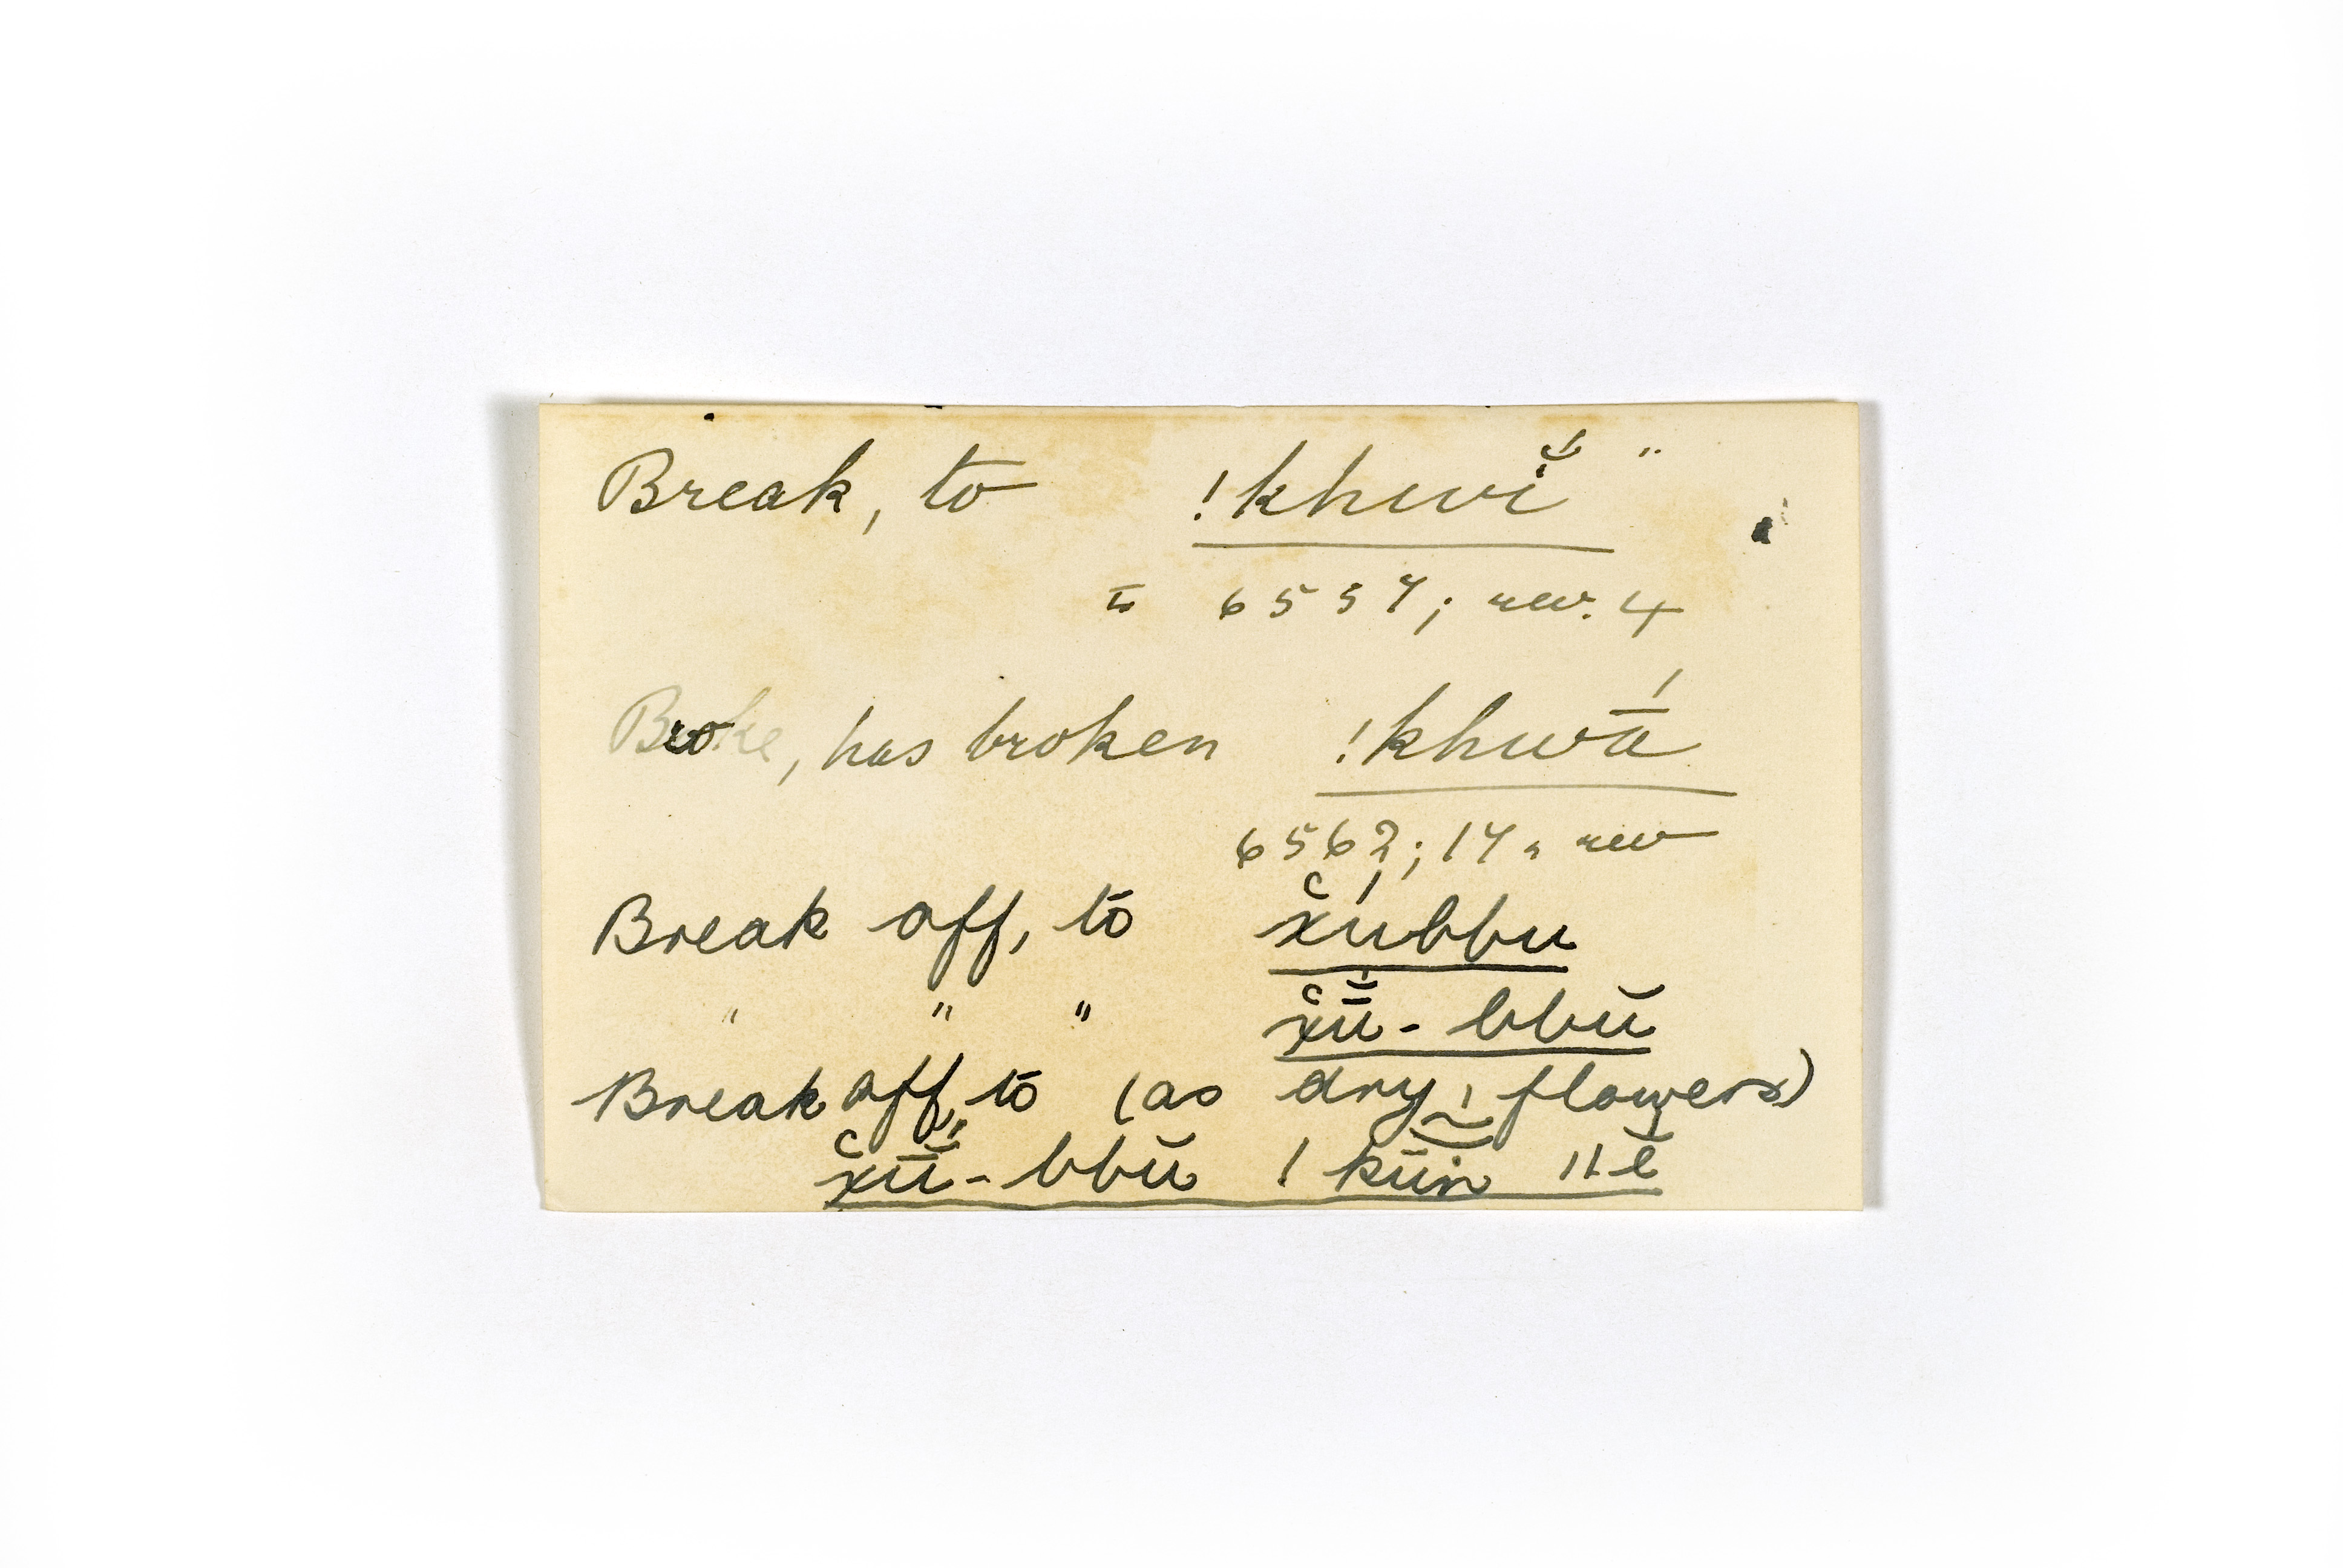 Break, to !khwĭ́ "
to 6557; rev. 4
Broke, has broken !khwā́
6562; 17, rev
Break off, to x̌úbbu
" " " x̌ū̆́-bbŭ
Break off, to (as dry flowers)
x̌ū̆-bbŭ !kūĭn ǁĕ